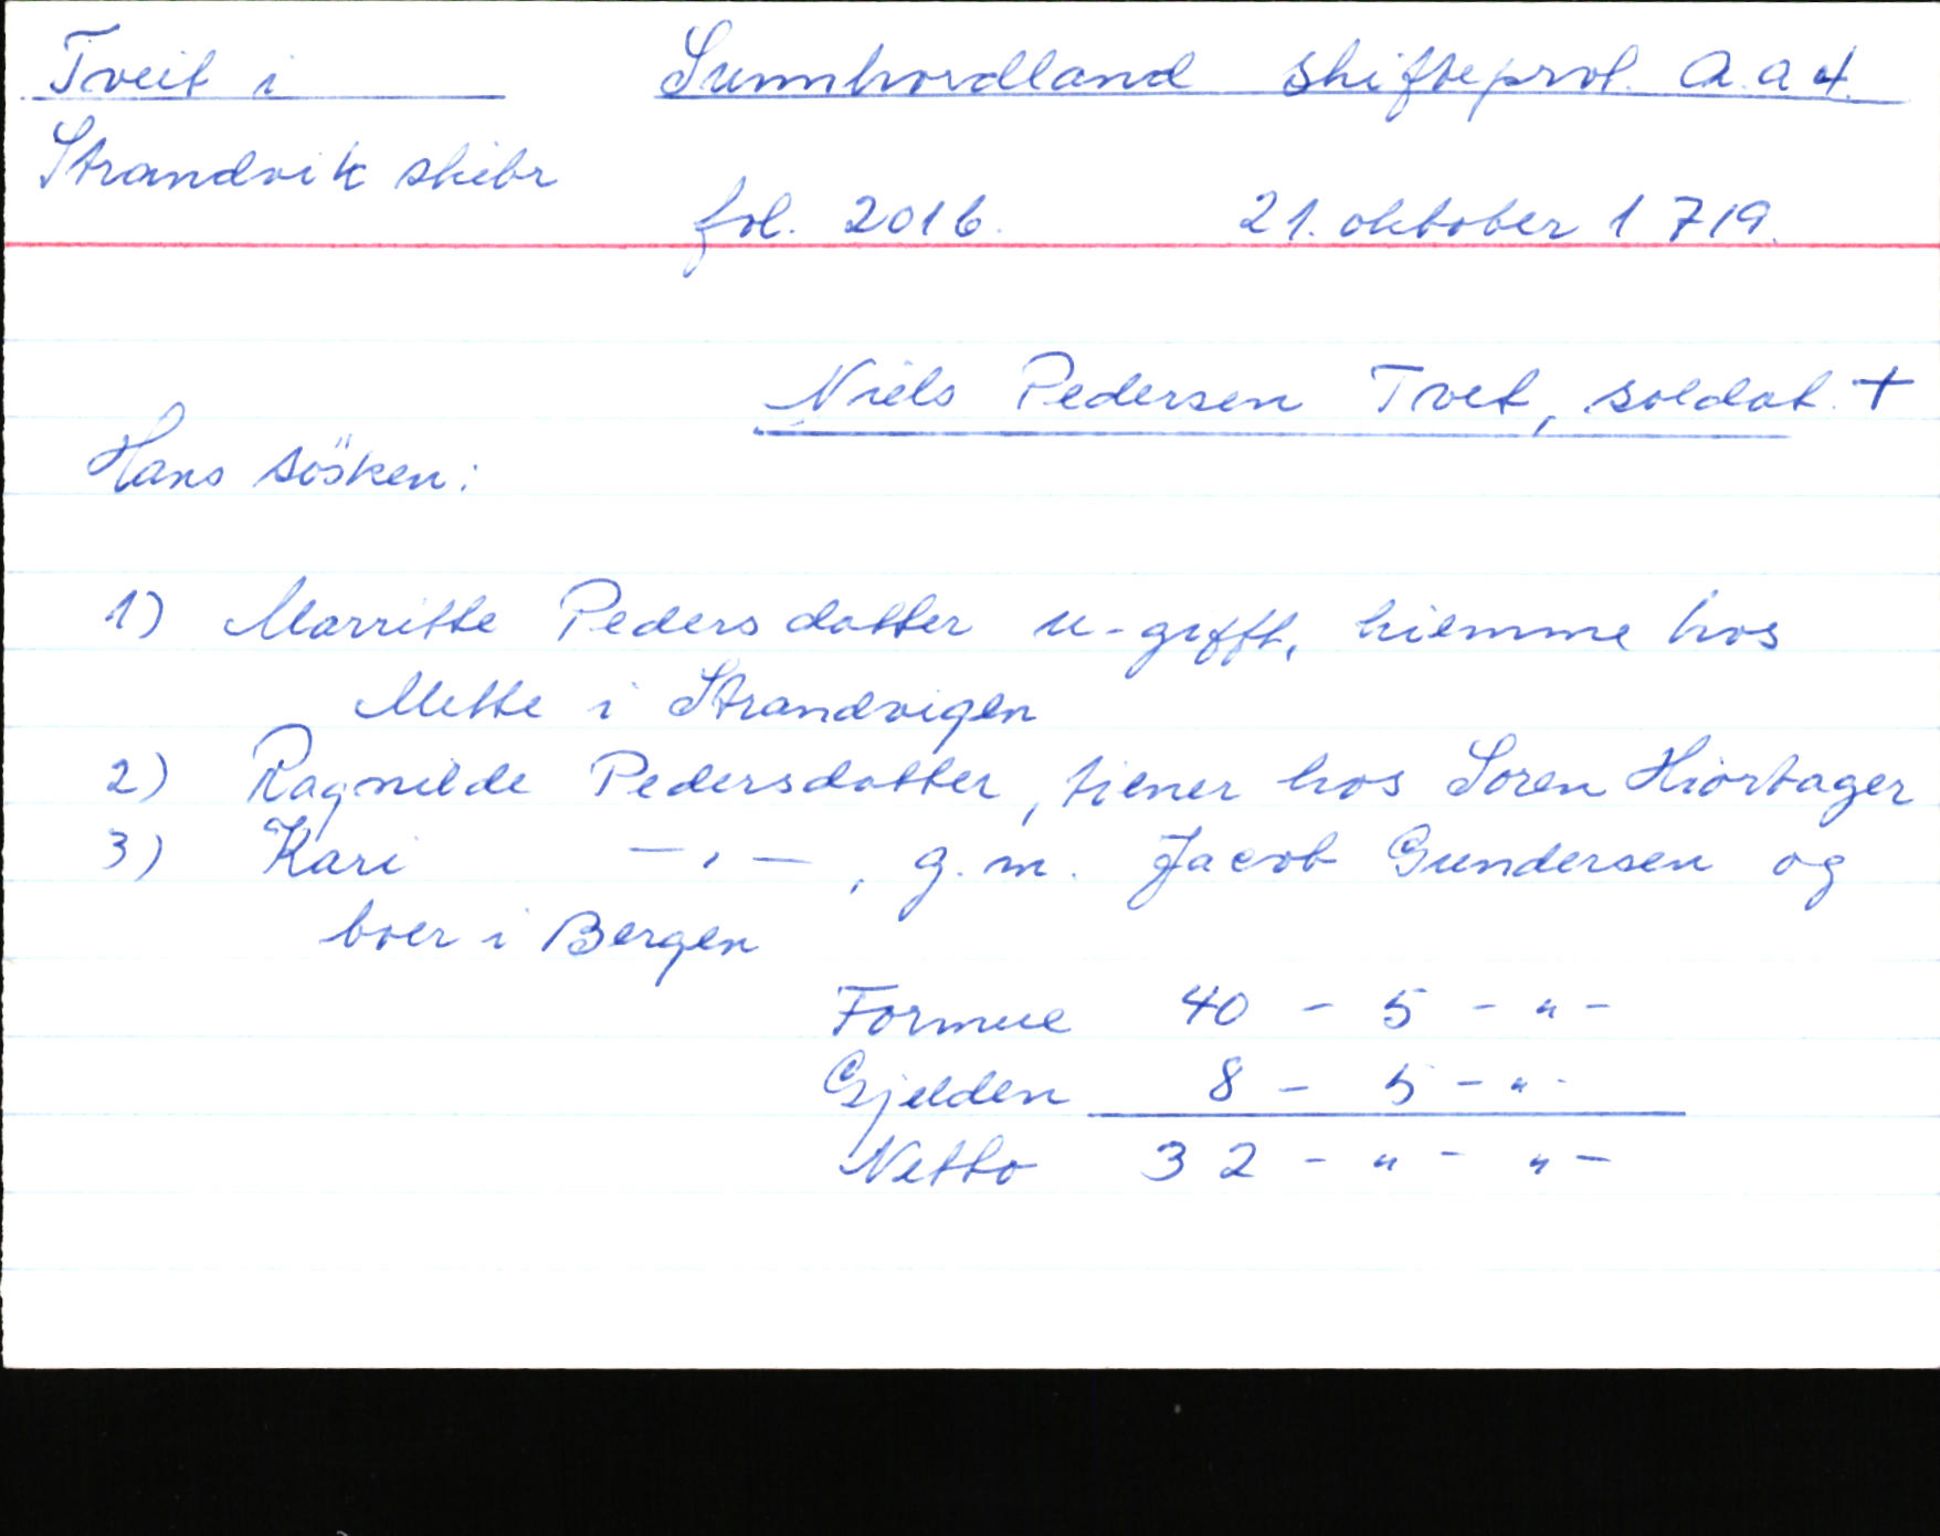 Tveit i Sunnhordland skifteprot. A.a 4.
Strandvik skibr
fol. 201b. 21. oktober 1719.
Niels Pedersen Tvet, soldat. +
Hans sösken:
1) Marritte Pedersdatter u-gifft, hiemme hos
Mette i Strandvigen
2) Ragnilde Pedersdatter, tiener hos Soren Hiortager
3) Kari —,—, g.m. Jacob Gundersen og
boer i Bergen
Formue 40 - 5 - " -
Gjelden 8 - 5 - " -
Netto 32 - " - " -